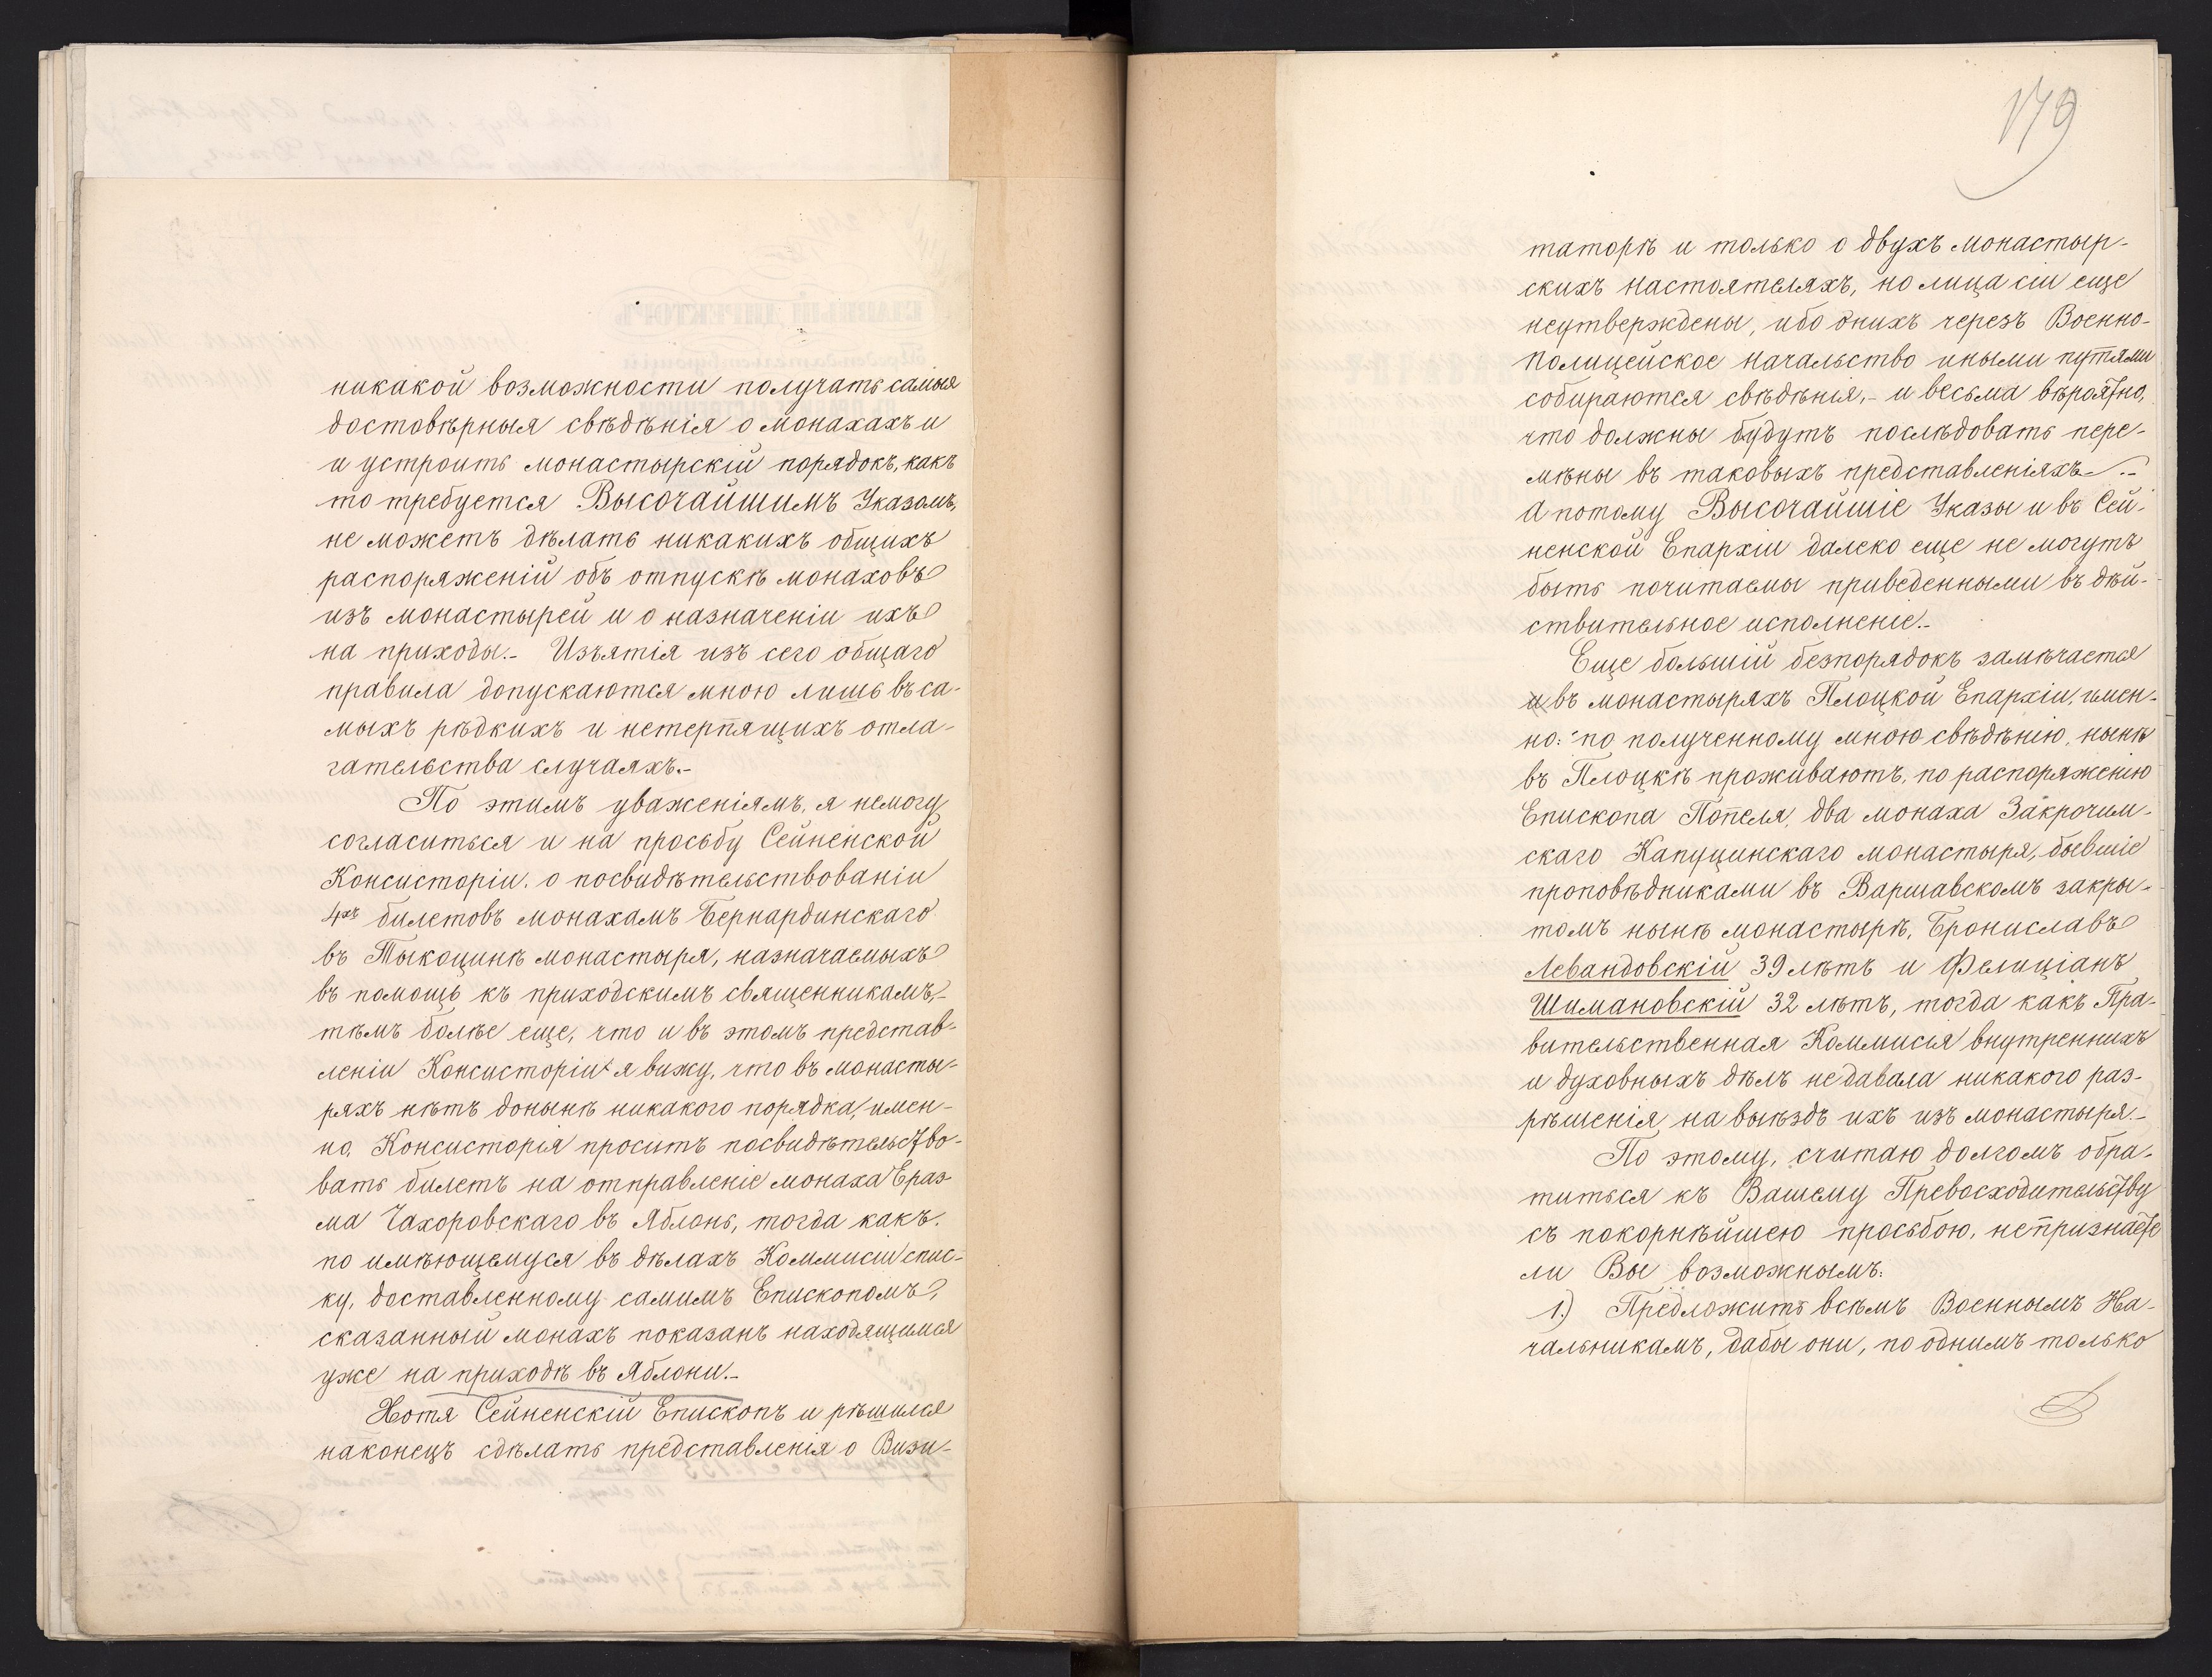 никакой возможности получать самыя
достовѣрныя свѣдѣнія о монахахъ и
и устроить монастырскій порядокъ, какъ
то требуется Высочайшимъ Указомъ,
не можетъ дѣлать никакихъ общихъ
распоряженій объ отпускѣ монаховъ
изъ монастырей и о назначеніи ихъ
на приходы.- Изъятія изъ сего общаго
правила допускаются мною лишь въ са-
мыхъ рѣдкихъ и нетерпящихъ отла-
гательства случаяхъ.-
По этимъ уваженіямъ, я немогу
согласиться и на просьбу Сейненской
Консисторіи, о посвидѣтельствованіи
4хъ билетовъ монахамъ Бернардинскаго
въ Тыкоцинѣ монастыря, назначаемыхъ
въ помощь къ приходскимъ священникамъ,-
тѣмъ болѣе еще, что и въ этомъ представ-
леніи Консисторіи я вижу, что въ монасты-
ряхъ нѣтъ донынѣ никакого порядка, имен-
но, Консисторія проситъ посвидѣтельство-
вать билетъ на отправленіе монаха Ераз-
ма Чахоровскаго въ Яблонь, тогда какъ,
по имѣющемуся въ дѣлахъ Коммисіи спис-
ку, доставленному самимъ Епископомъ,
сказанный монахъ показанъ находящимся
уже на приходѣ въ Яблони.-
Хотя Сейненскій Епископъ и рѣшился
наконецъ сдѣлать представленія о Визи-
179
таторѣ и только о двухъ монастыр-
скихъ настоятеляхъ, но лица сіи еще
неутверждены, ибо онихъ черезъ Военно-
полицейское начальство иными путями
собираются свѣдѣнія,- и весьма вѣроятно,
что должны будутъ послѣдовать пере-
мѣны въ таковыхъ представленіяхъ.-
А потому Высочайшіе Указы и въ Сей-
ненской Епархіи далеко еще не могутъ
быть почитаемы приведенными въ дѣй-
ствительное исполненіе.-
Еще большій безпорядокъ замѣчается
и въ монастыряхъ Плоцкой Епархіи, имен-
но: по полученному мною свѣдѣнію, нынѣ
въ Плоцкѣ проживаютъ, по распоряженію
Епископа Попеля, два монаха Закрочим-
скаго Капуцинскаго монастыря, бывшіе
проповѣдниками въ Варшавскомъ закры-
томъ нынѣ монастырѣ, Брониславъ
Левандовскій 39 лѣтъ и Фелиціанъ
Шимановскій 32 лѣтъ, тогда какъ Пра-
вительственная Коммисія внутреннихъ
и духовныхъ дѣлъ недавала никакого раз-
рѣшенія на выѣздъ ихъ изъ монастыря.-
По этому, считаю долгомъ обра-
титься къ Вашему Превосходительству
съ покорнѣйшею просьбою, непризнаете
ли Вы возможнымъ:
1.) Предложить всѣмъ Военнымъ На-
чальникамъ, дабы они, по однимъ только